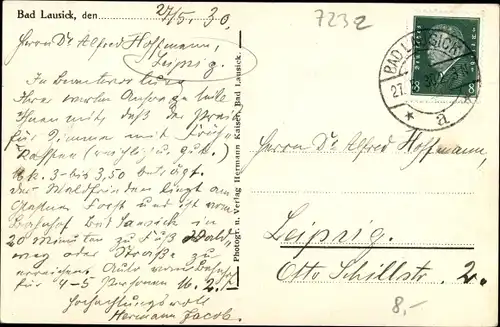 Bad Lausick, den 27/5.30.
Herrn Dr Alfred Hoffmann,
Leipzig.
In Beantwortung
Ihrer werten Anfrage teile
Ihnen mit, daß der Preis
für Zimmer mit Früh-
Kaffee (reichlich u. gut.)
Mk. 3- bis 3,50 beträgt.
Der Waldfrieden liegt am
Forst und ist vom
Bahnhof Bad Lausick in
20 Minuten zu Fuß Wald-
weg oder Straße zu
erreichen. Auto vom Bahnhof
für 4-5 Personen M. 2.-
Hochachtungsvoll
Hermann Jacob.
Photogr. u. Verlag Hermann Kaiser, Bad Lausick.
7232
8
8
BAD LAUSICK
27.5.30
* a
Herrn Dr Alfred Hoffmann,
Leipzig.
Otto Schillstr. 2.
8,-